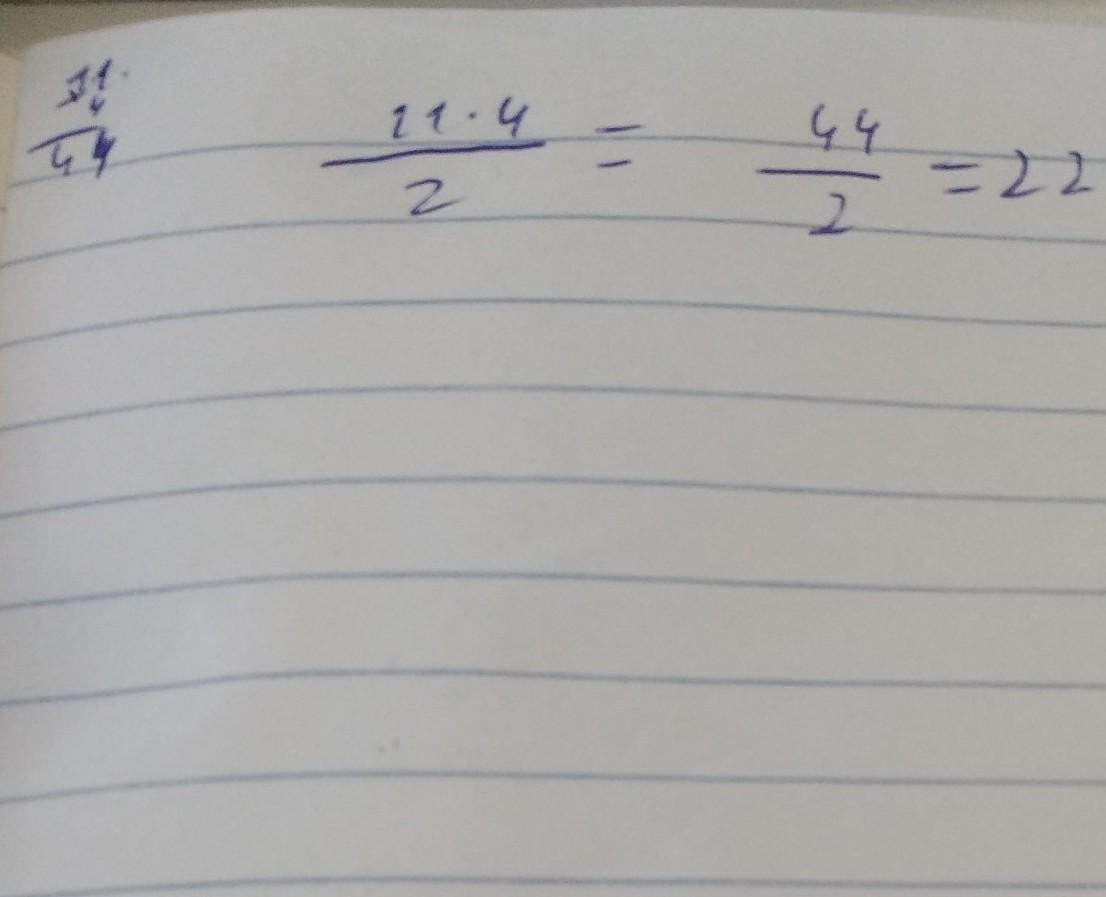 11 ·
4
44
11 · 4 / 2 = 44 / 2 = 22